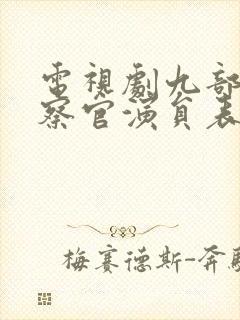 電視劇九部
察官演員表
梅賽德斯-奔馳